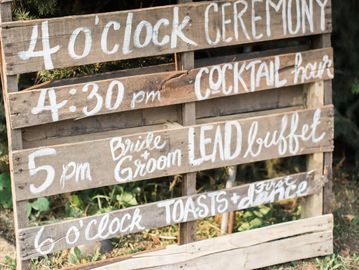 4 o'clock CEREMONY
4:30 pm COCKTAIL hour
5 pm Bride + Groom LEAD buffet
6 o'clock TOASTS + first dance